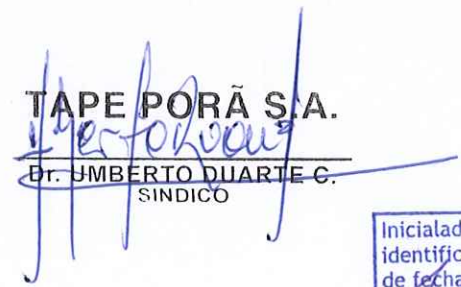 TAPE PORÃ S.A.
Dr. UMBERTO DUARTE C.
SINDICO
Inicialad
identific
de fecha